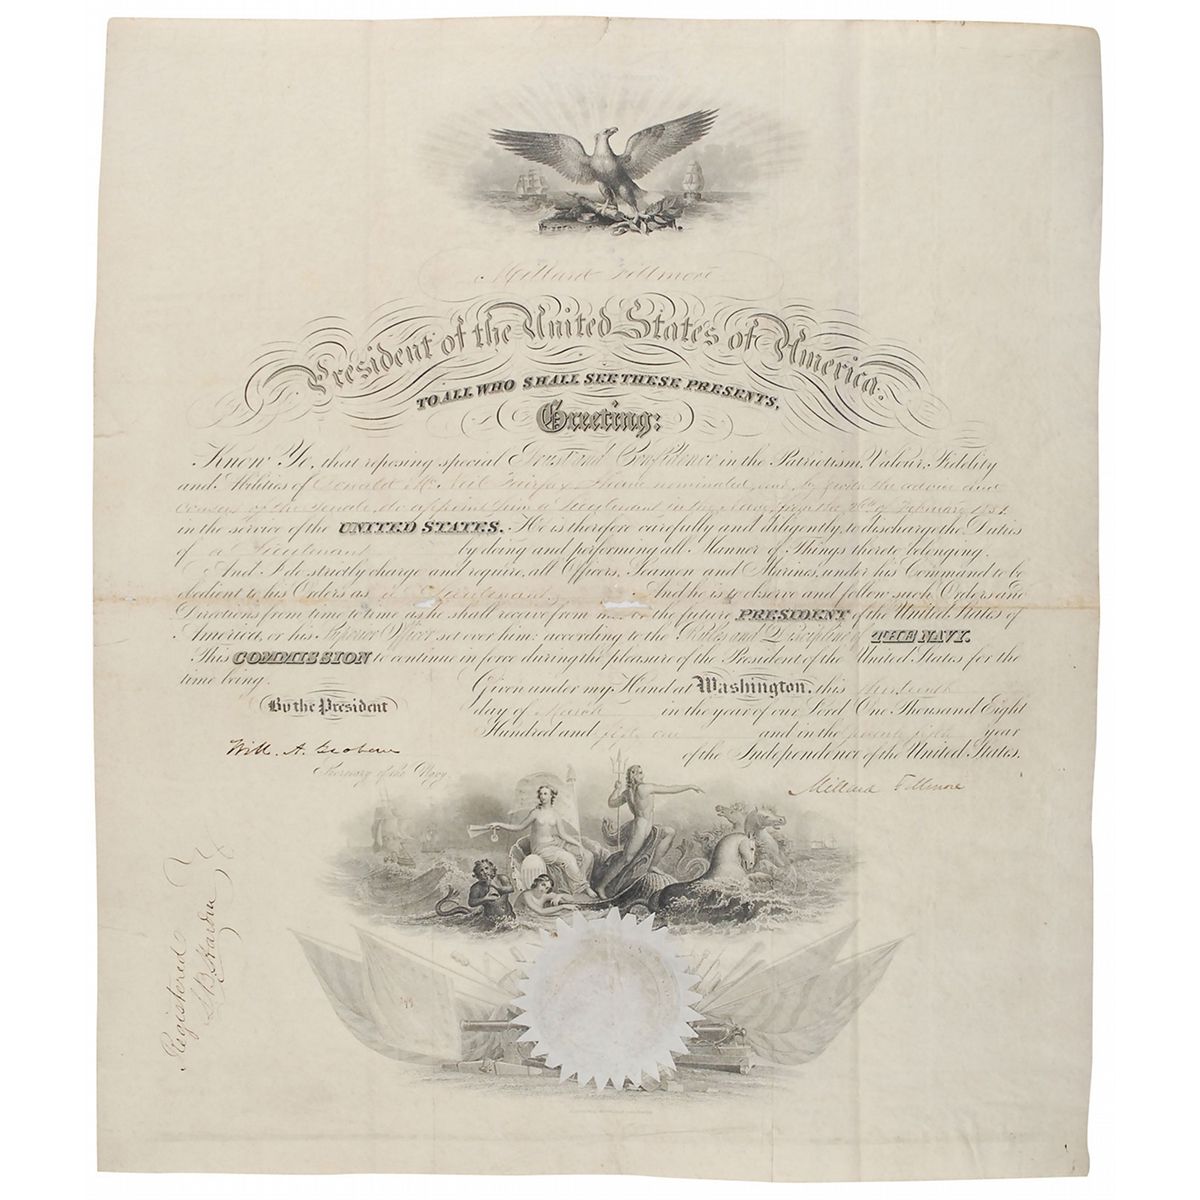 Millard Fillmore
President of the United States of America.
TO ALL WHO SHALL SEE THESE PRESENTS,
Greeting:
Know Ye, that reposing special Trust and Confidence in the Patriotism, Valour, Fidelity
and Abilities of Donald Mc Neil Fairfax I have nominated, and by & with the advice and
consent of the Senate, do appoint him a Lieutenant in the Navy from the of February 1851
in the service of the UNITED STATES. He is therefore carefully and diligently, to discharge the Duties
of a Lieutenant by doing and performing all Manner of Things thereto belonging.
And I do strictly charge and require, all Officers, Seamen and Marines, under his Command to be
obedient to his Orders as a Lieutenant And he is to observe and follow such Orders and
Directions from time to time as he shall receive from me, or the future PRESIDENT of the United States of
America, or his Superior Officer set over him; according to the Rules and Discipline of THE NAVY.
This COMMISSION to continue in force during the pleasure of the President of the United States for the
time being.
Given under my Hand at Washington, this thirteenth
By the President
day of March in the year of our Lord One Thousand Eight
Hundred and fifty one and in the seventy fifth year
of the Independence of the United States.
Will. A. Graham
Secretary of the Navy.
Millard Fillmore
Registered